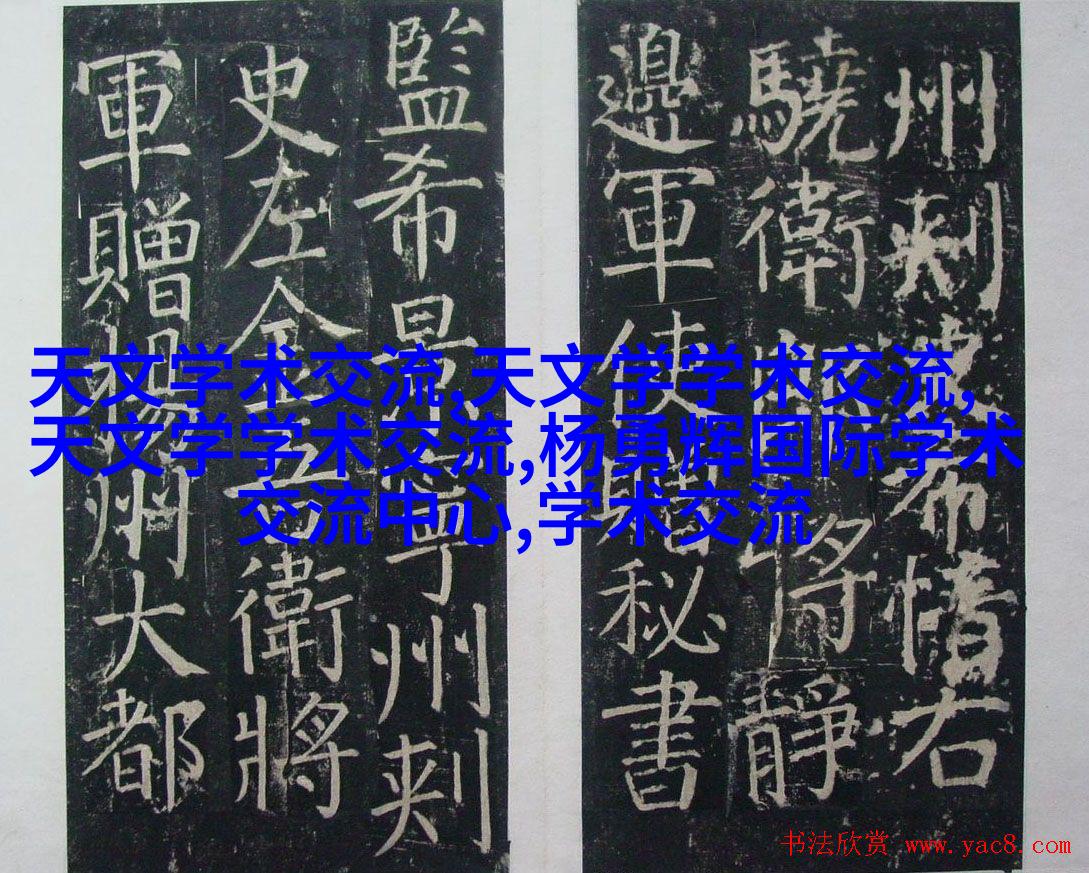 州刺史希愔右
驍衛郎將靜
邊軍使秘書
監希景寧州刺
史左金吾衛將
軍贈揚州大都
天文学术交流,天文学学术交流,
天文学学术交流,杨勇辉国际学术
交流中心,学术交流
书法欣赏 www.yac8.com